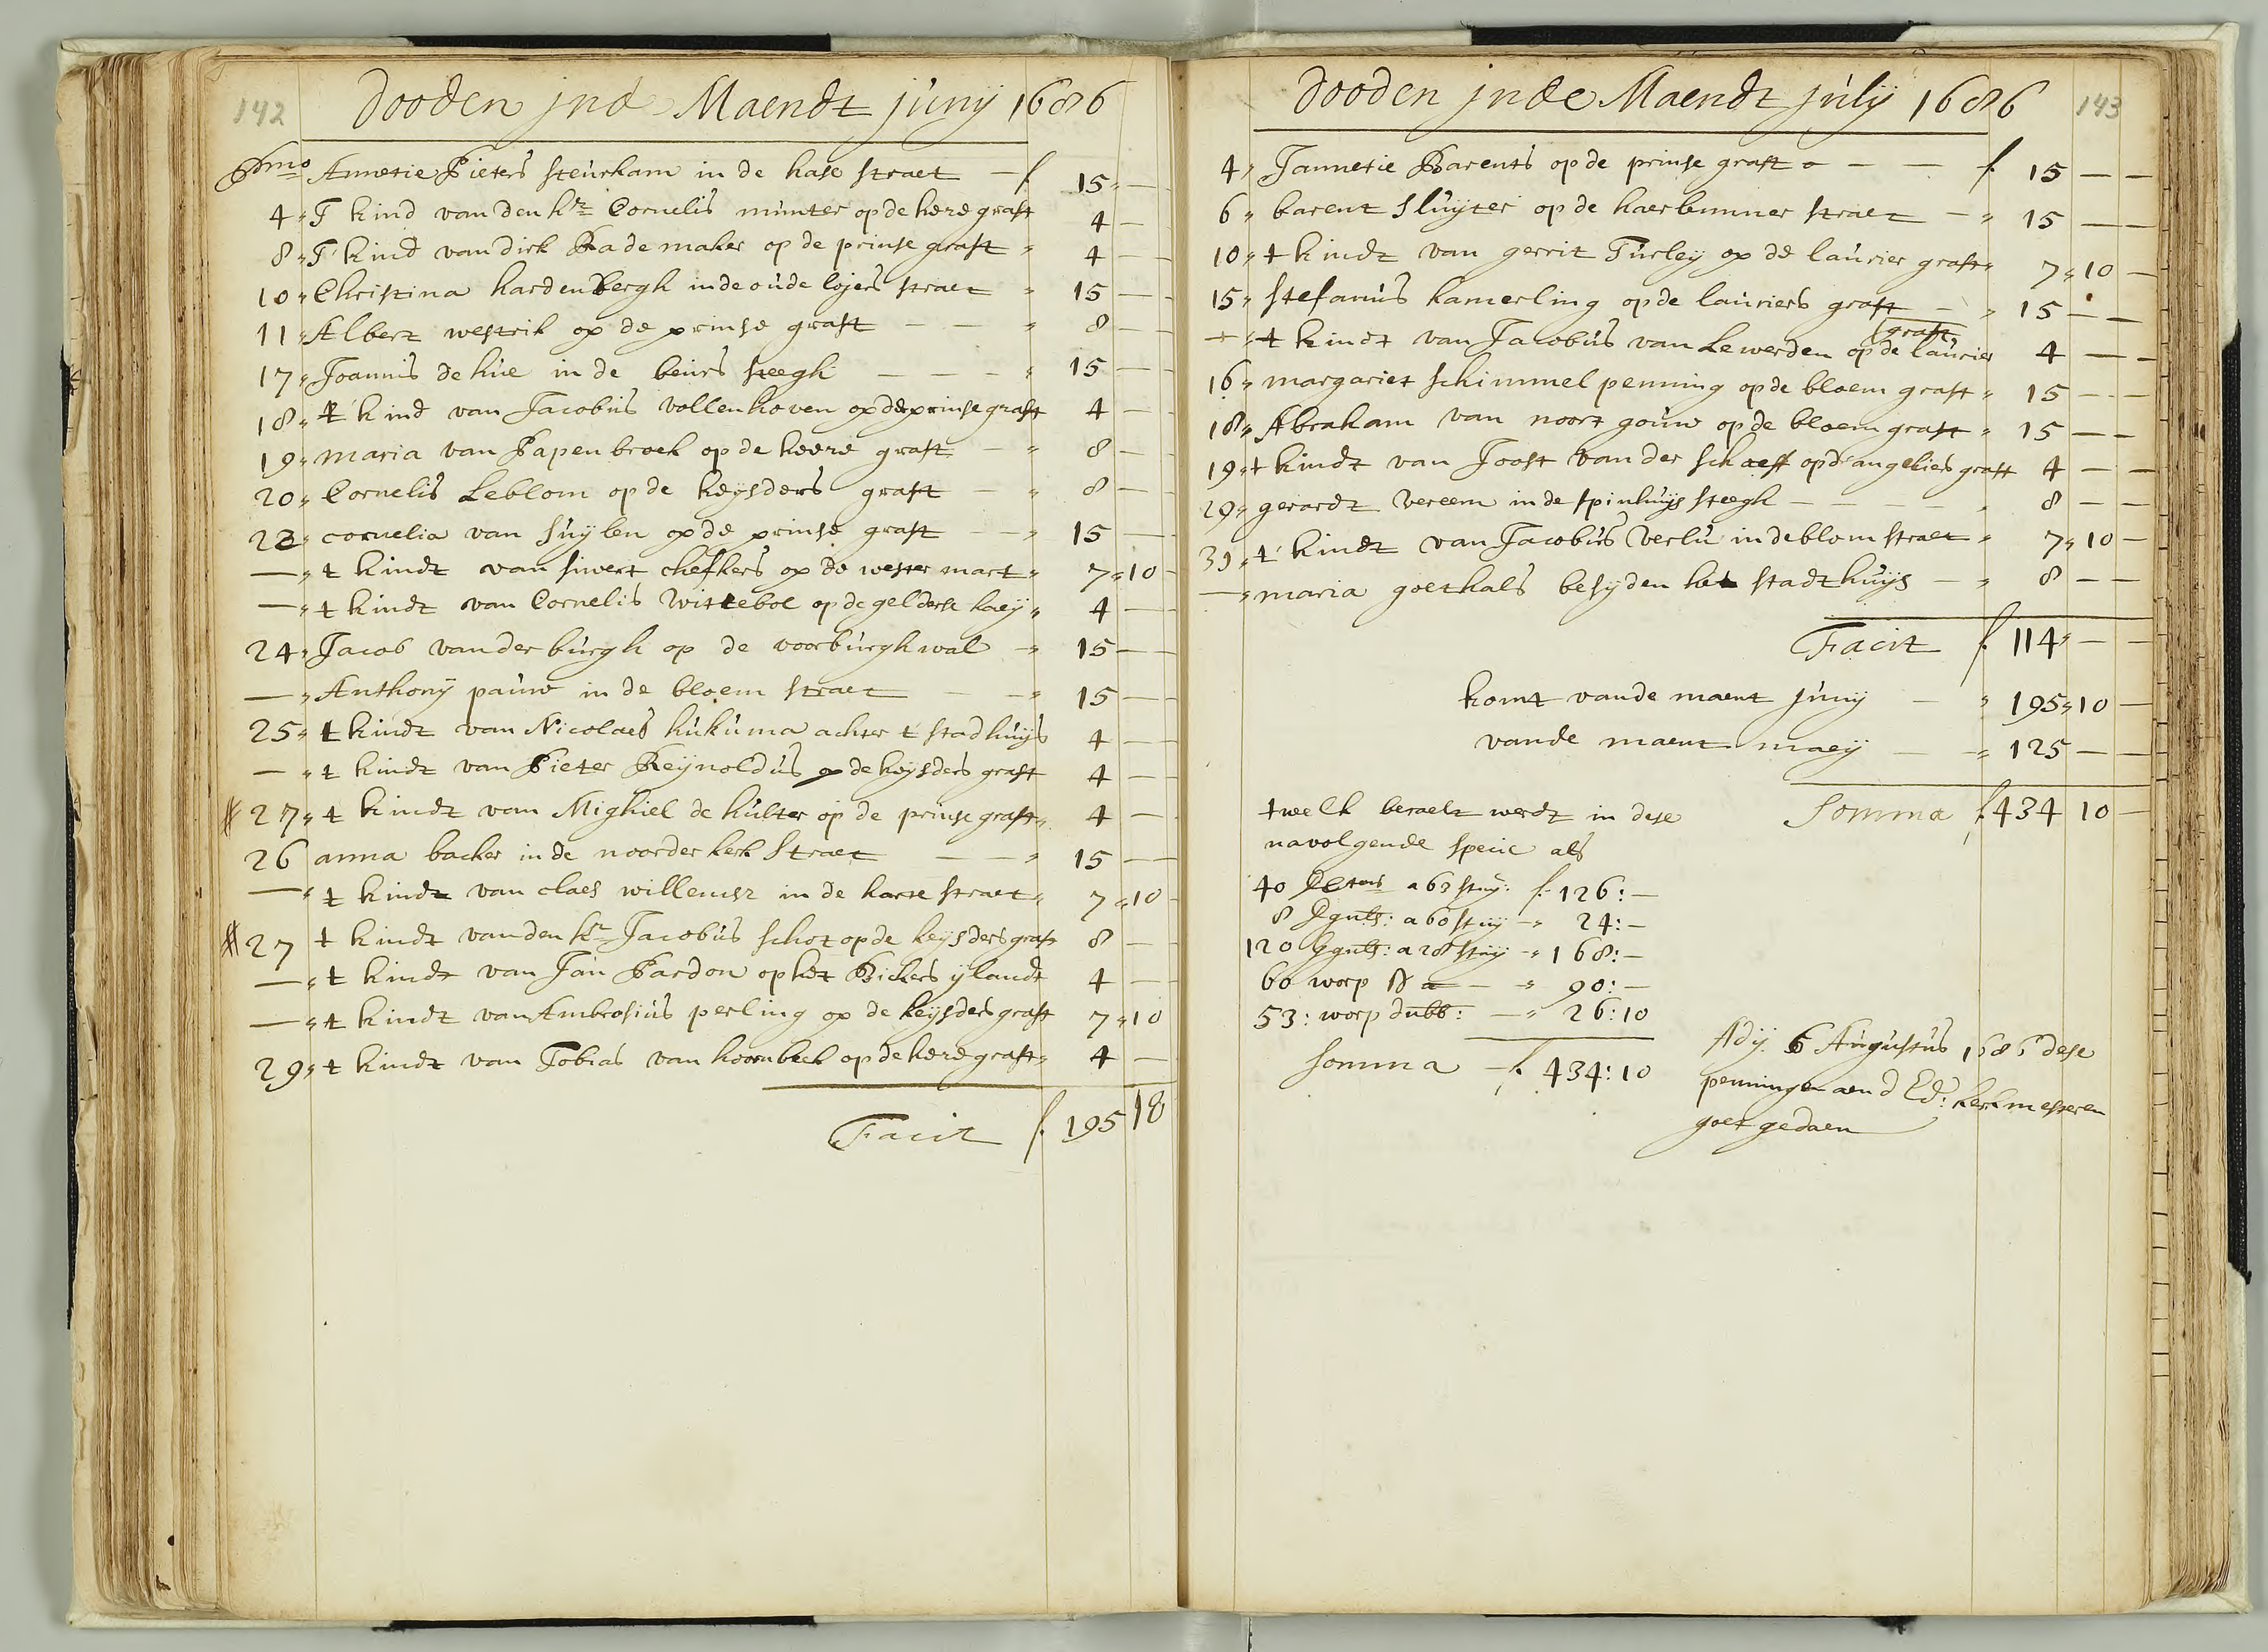 142
dooden jnd Maendt junij 1686
Pmo Annetie Pieters steurham in de hase straet - f 15 " -
4 " T kind van den hr Cornelis munter op de here graft 4 -
8 " T kind van dirk Rademaker op de prinse graft " 4 - -
10 " Christina hardenbergh in de oude lojers straet " 15 - -
11 " Albert westrik op de prinse graft - - " 8 - -
17 " Joannis de hue in de beurs steegh - - - " 15 - -
18 " t kind van Jacobus vollenhoven op de prinse graft 4 -
19 " maria van Papenbroek op de heere graft - " 8 -
20 " Cornelis Leblom op de keysders graft - " 8 -
22 " cornelia van suylen op de prinse graft - " 15 -
- " t kindt van siwert cheskers op de wester mart " 7 " 10 -
- " t kindt van Cornelis Wittebol op de gelderse kaey " 4 -
24 " Jacob vander burgh op de voorburghwal - " 15 - -
- " Anthony pauw in de bloem straet - - " 15 - -
25 " t kindt van Nicolaes hukuma achter t stadhuys 4 -
- " t kindt van Pieter Reynoldus op de keysders graft 4 -
# 27 " t kindt van Mighiel de hulter op de prinse graft " 4 -
26 anna backer in de noorder kerk straet - - " 15 - -
- " t kindt van claes willemsz in de harte straet " 7 " 10 -
# 27 t kindt van den hr Jacobus schot op de keysders graf 8 -
- " t kindt van Jan Pardon op het Bickers ylandt 4 -
- " t kindt van Ambrosius perling op de keysders graft 7 " 10
29 " t kindt van Tobias van hoornbeek op de here graft " 4 -
Facit f 195 10
dooden jnde Maendt july 1686
143
4 " Jannetie Barents op de prinse graft - - f 15 - -
6 " barent sluyter op de haerlemmer straet - " 15 - -
10 " t kindt van gerrit Turley op de laurier graft " 7 " 10 -
15 " stefanus hamerling op de lauriers graft - " 15 - -
graft
- " t kindt van Jacobus van Lewerden op de laurier 4 - -
16 " margariet schimmelpenning op de bloem graft " 15 - -
18 " Abraham van noort gouw op de bloem graft " 15 - -
19 " t kindt van Joost vander schaeff op d'angeliers graft 4 - -
29 " gerardt vereem in de spinhuys steegh - - - - " 8 - -
31 " t kindt van Jacobus verlu in de blom straet " 7 " 10 -
- " maria goethals besyden het stadthuys - " 8 - -
Facit f 114 " - -
komt vande maent juny - " 195 " 10 -
vande maent maey - - " 125 - -
Somma f 434 10 -
twelk betaelt werdt in dese
navolgende specie als
40 a 63 stuy: f 126 : -
8 guls: a 60 stuy - " 24 : -
120 guls: a 28 stuy - " 168 : -
60 worp - " 90 : -
53 : worp dubb: - " 26 : 10
Somma - f 434 : 10
Adij 6 Augustus 1686 dese
penningen aen d Ed: kerkmesteren
goet gedaen